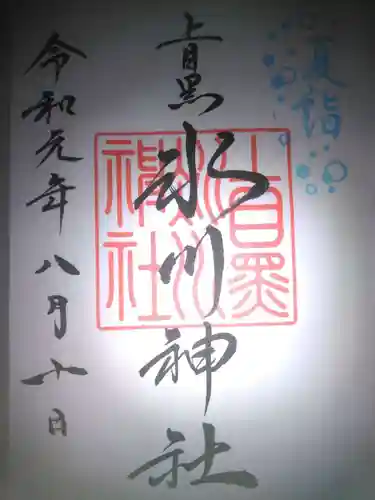 夏詣
上目黒
氷川神社
上目黒氷川神社
令和元年八月十日